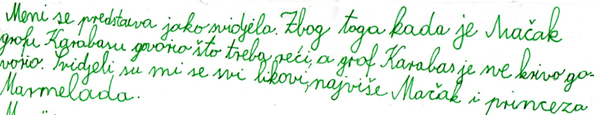 Meni se predstava jako svidjela. Zbog toga kada je Mačak
grofu Karabasu govorio što treba reći, a grof Karabas je sve krivo go-
vorio. Svidjeli su mi se svi likovi, najviše Mačak i princeza
Marmelada.